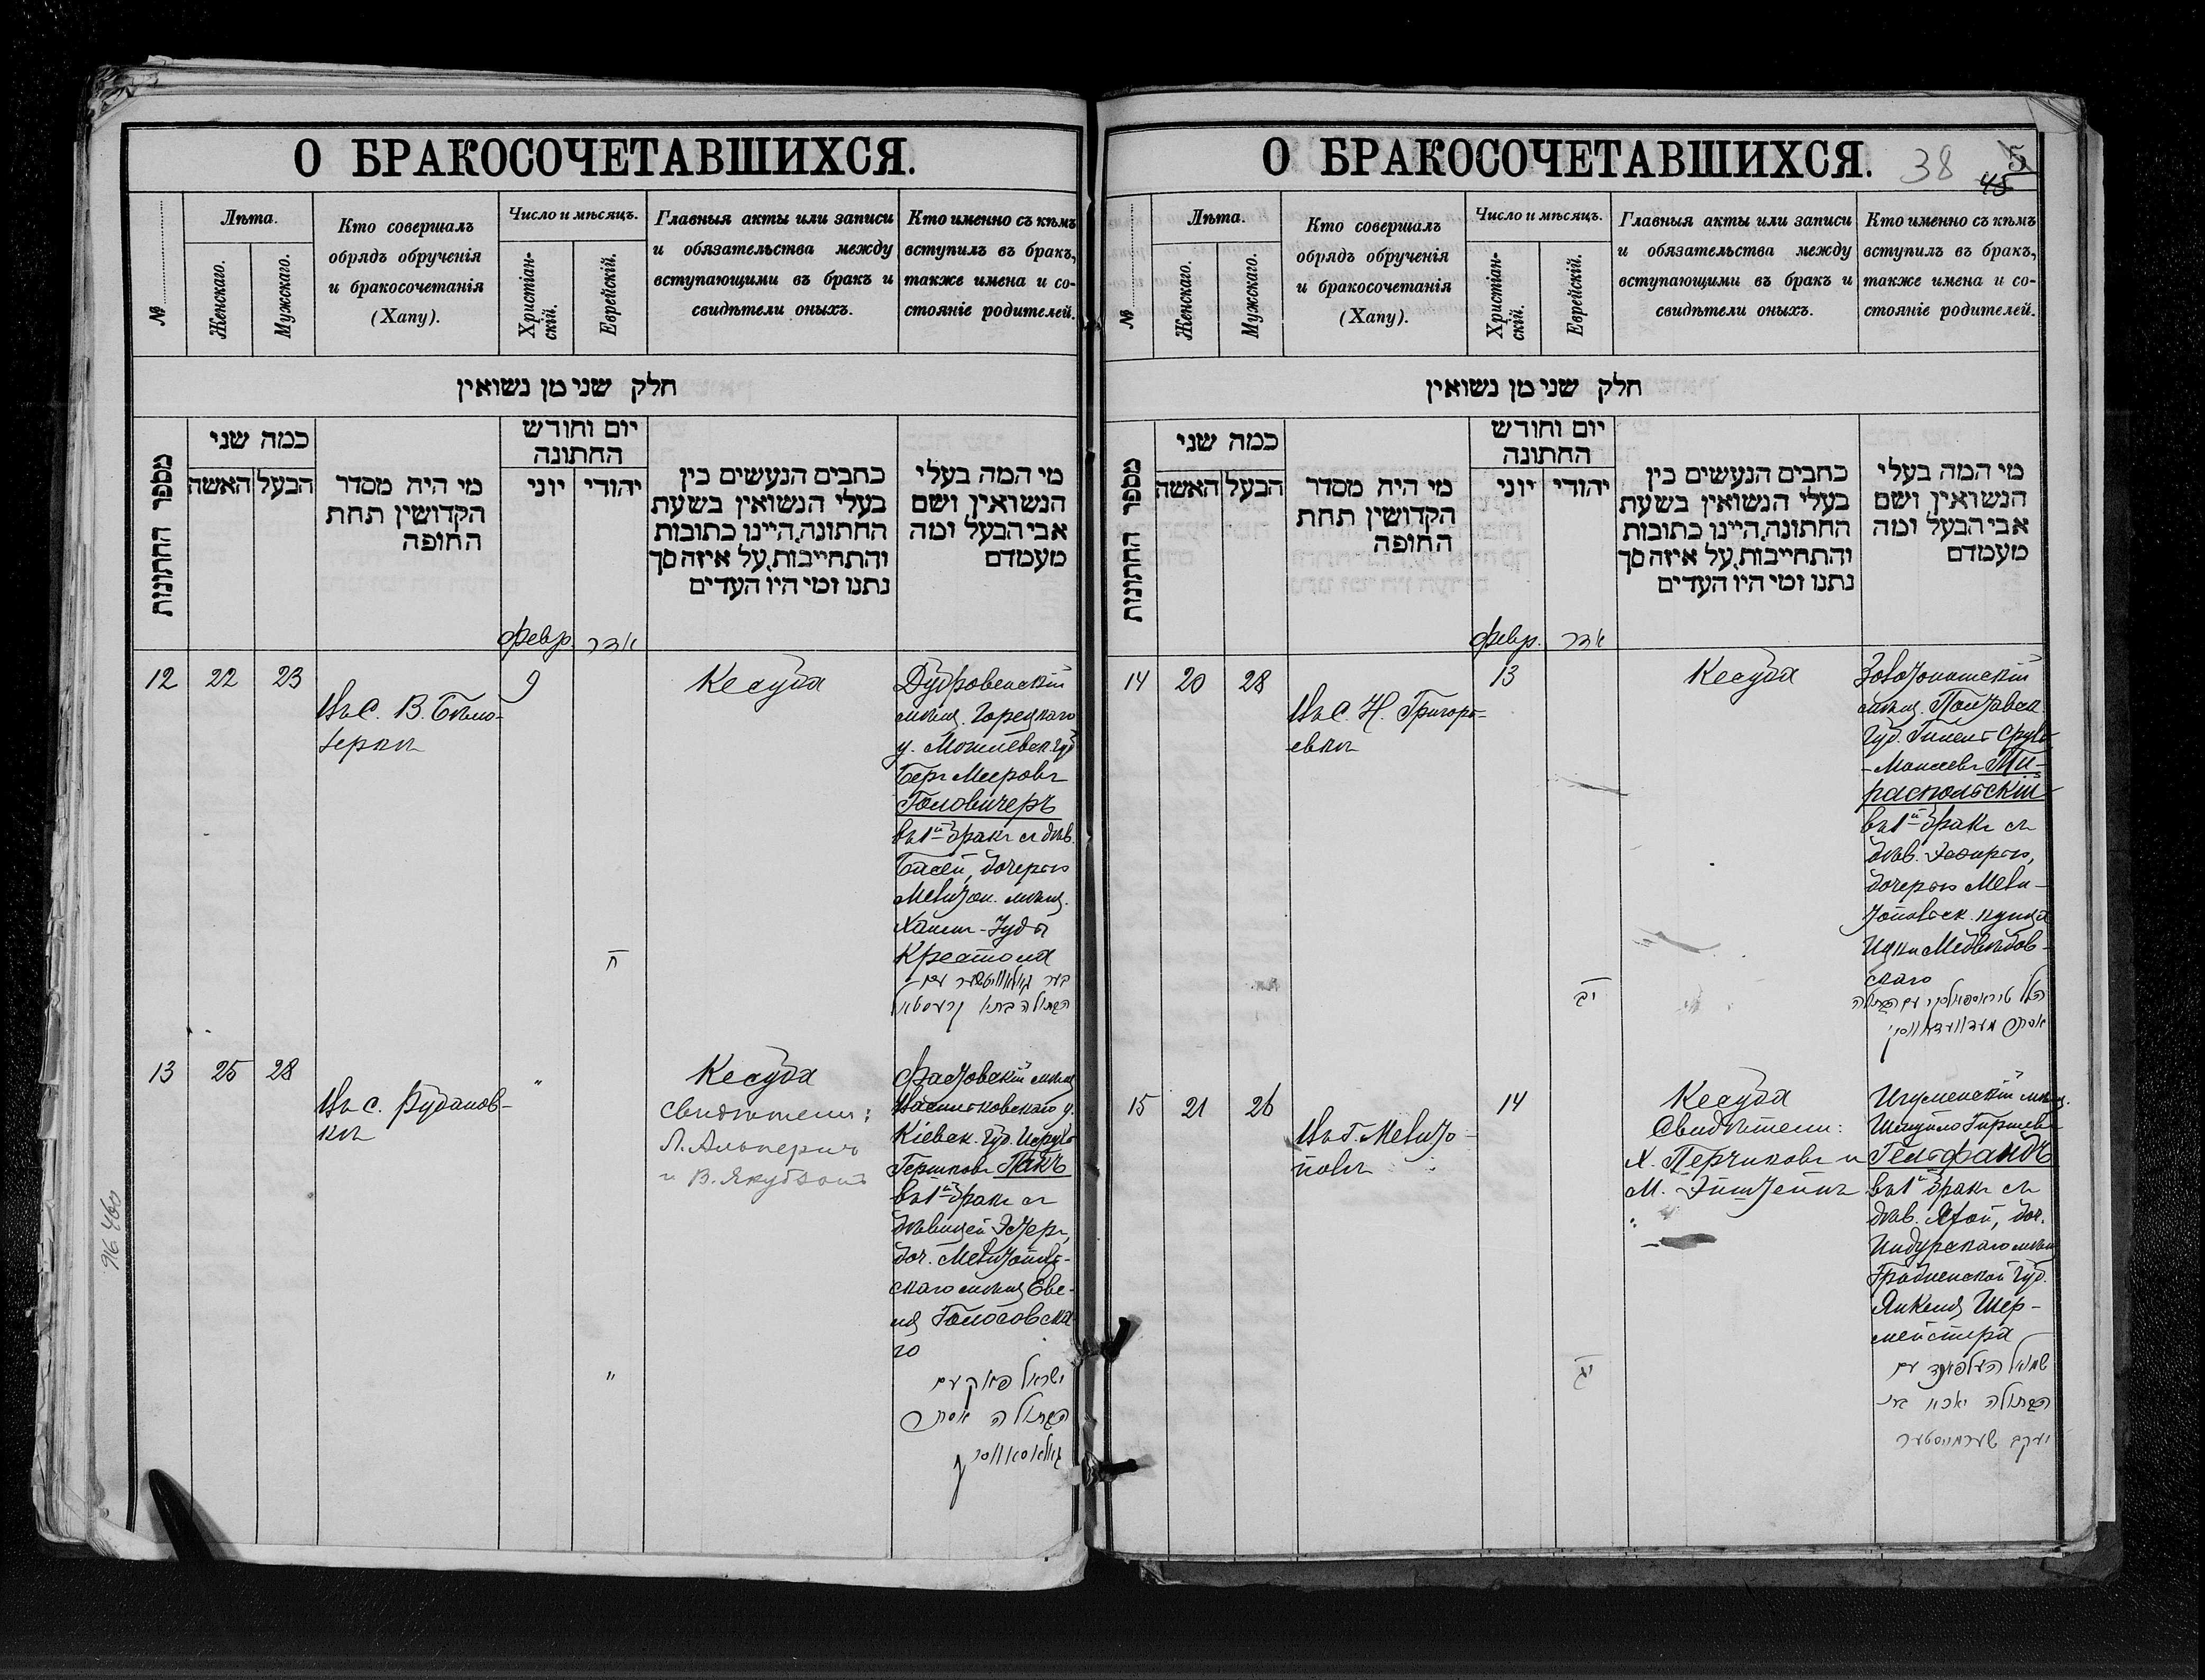 О БРАКОСОЧЕТАВШИХСЯ.
№
Лѣта.
Женскаго.
Мужскаго.
Кто совершалъ
обрядъ обрученія
и бракосочетанія
(Хапу).
Число и мѣсяцъ.
Христіан-
скій.
Еврейскій.
Главныя акты или записи
и обязательства между
вступающими въ бракъ и
свидѣтели оныхъ.
Кто именно съ кѣмъ
вступилъ въ бракъ,
также имена и со-
стояніе родителей.
חלק שני מן נשואין
מספר החתונות
כמה שני
הבעל האשה
מי היה מסדר
הקדושין תחת
החופה
יום וחודש
החתונה
יהודי יוני
כתבים הנעשים בין
בעלי הנשואין בשעת
החתונה, היינו כתובות
והתחייבות, על איזה סך
נתנו ומי היו העדים
מי המה בעלי
הנשואין ושם
אבי הבעל ומה
מעמדם
февр. אדר
12 22 23
Въ С. В. Бѣло-
зеркѣ
9
ח
Кесуба
Дубровенскій
мѣщ. Горецкаго
у. Могилевск. губ
Беръ Мееровъ
Головичеръ
въ 1й бракъ съ дѣв.
Басей, дочерью
Мелитоп. мѣщ.
Хаимъ-Іуды
Крестона
13 25 28
Въ с. Рубанов-
кѣ
"
"
Кесуба
свидѣтели:
Л. Альперинъ
и В. Якубзонъ
Фастовскій мѣщ
Васильковскаго у.
Кіевск. губ. Исруль
Гершковъ Пакъ
въ 1й бракъ съ
дѣвицей Эстеръ,
доч. Мелитополь-
скаго мѣщ Еве-
ля Голосовска-
го
ישראל פאק עם
הבתולה אסתר
גאלאסאווסקי
О БРАКОСОЧЕТАВШИХСЯ.
38 5
45
№
Лѣта.
Женскаго.
Мужскаго.
Кто совершалъ
обрядъ обрученія
и бракосочетанія
(Хапу).
Число и мѣсяцъ.
Христіан-
скій.
Еврейскій.
Главныя акты или записи
и обязательства между
вступающими въ бракъ и
свидѣтели оныхъ.
Кто именно съ кѣмъ
вступилъ въ бракъ,
также имена и со-
стояніе родителей.
חלק שני מן נשואין
מספר החתונות
כמה שני
הבעל האשה
מי היה מסדר
הקדושין תחת
החופה
יום וחודש
החתונה
יהודי יוני
כתבים הנעשים בין
בעלי הנשואין בשעת
החתונה, היינו כתובות
והתחייבות, על איזה סך
נתנו ומי היו העדים
מי המה בעלי
הנשואין ושם
אבי הבעל ומה
מעמדם
февр. אדר
14 20 28
Въ С. Н. Григорь-
евкѣ
13
יב
Кесуба
Золотоношскій
мѣщ. Полтавск
губ. Гилель Сруль
-Моисеевъ Ти-
распольскій
въ 1й бракъ съ
дѣв. Эсѳирью,
дочерью Мели-
топольск. купца
Ицки Медвѣдов-
скаго
15 21 26
Въ г. Мелито-
полѣ
14
יג
Кесуба
Свидѣтели:
Х. Перчиковъ и
М. Эпштейнъ
Игуменскій мѣщ.
Шмуйло Гиршевъ
Гельфандъ
въ 1й бракъ съ
дѣв. Яхой, доч.
Индурскаго мѣщ
Гродненской губ.
Янкеля Шер-
мейстера
שמואל העלפאנד עם
הבתולה יאכא בת
יעקב שערמייסטער
916 460